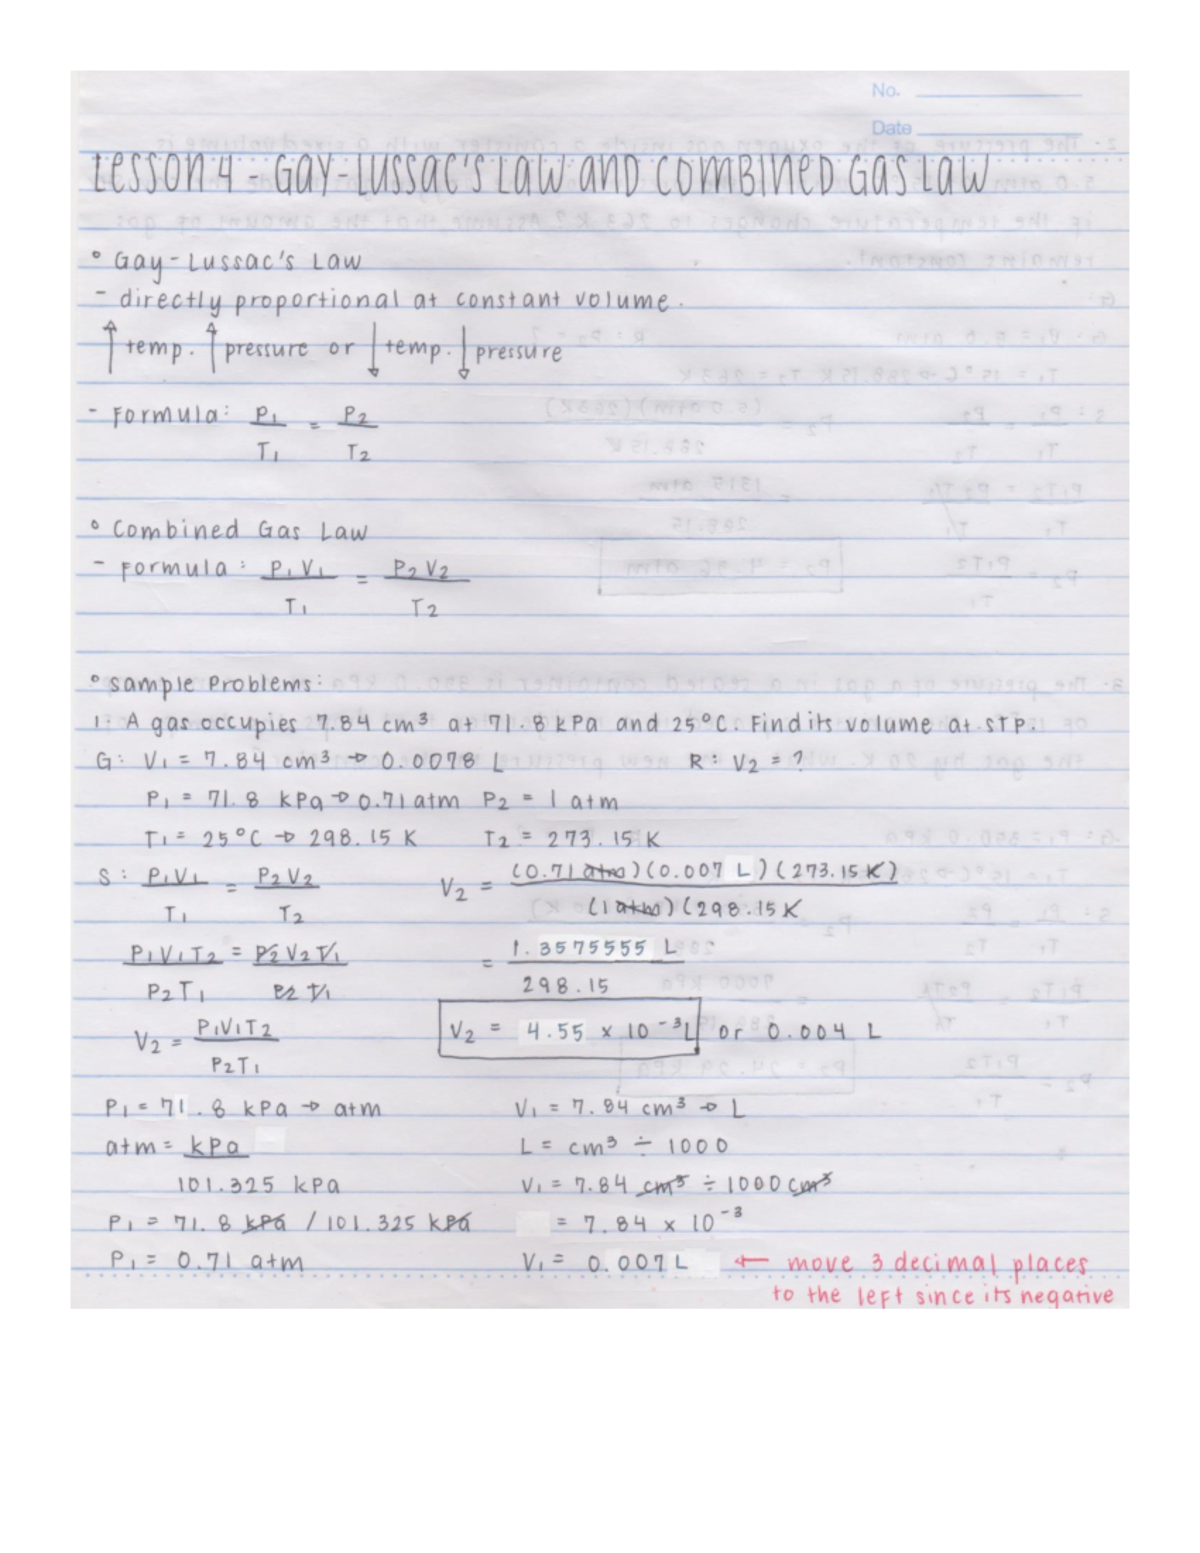 No.
Date
Lesson 4 - GAY-LUSSAC'S LAW AND COMBINED GAS LAW
° Gay-Lussac's Law
- directly proportional at constant volume.
↑ temp. ↑ pressure or ↓ temp. ↓ pressure
- Formula: P1/T1 = P2/T2
° Combined Gas Law
- Formula: P1V1/T1 = P2V2/T2
° Sample Problems:
1. A gas occupies 7.84 cm³ at 71.8 kPa and 25°C. Find its volume at STP.
G: V1 = 7.84 cm³ → 0.0078 L R: V2 = ?
P1 = 71.8 kPa → 0.71 atm P2 = 1 atm
T1 = 25°C → 298.15 K T2 = 273.15 K
S: P1V1/T1 = P2V2/T2 V2 = (0.71 atm)(0.007 L)(273.15 K)/(1 atm)(298.15 K
P1V1T2/P2T1 = P2V2T1/P2T1 = 1.3575555 L/298.15
V2 = P1V1T2/P2T1 V2 = 4.55 x 10⁻³L or 0.004 L
P1 = 71.8 kPa → atm V1 = 7.84 cm³ → L
atm = kPa/101.325 kPa L = cm³ ÷ 1000
V1 = 7.84 cm³ ÷ 1000 cm³
P1 = 71.8 kPa / 101.325 kPa = 7.84 x 10⁻³
P1 = 0.71 atm V1 = 0.007 L ← move 3 decimal places
to the left since its negative